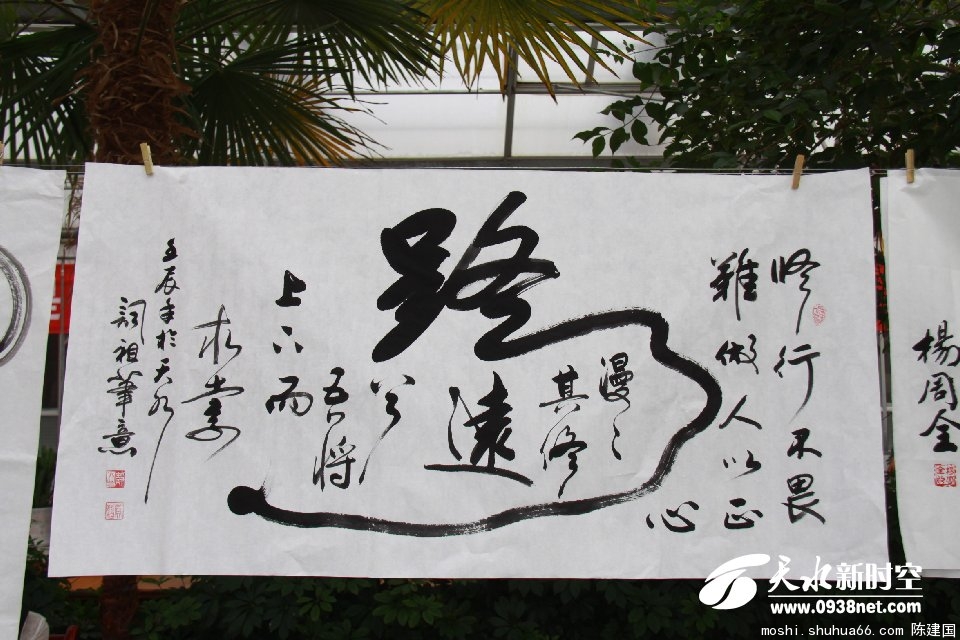 修行不畏
難做人以正
心
路
漫〻
其修
遠
兮
吾將
上下而
求索
壬辰年於天水
詞祖筆意
楊周全
天水新时空
www.0938net.com
moshi.shuhua66.com 陈建国